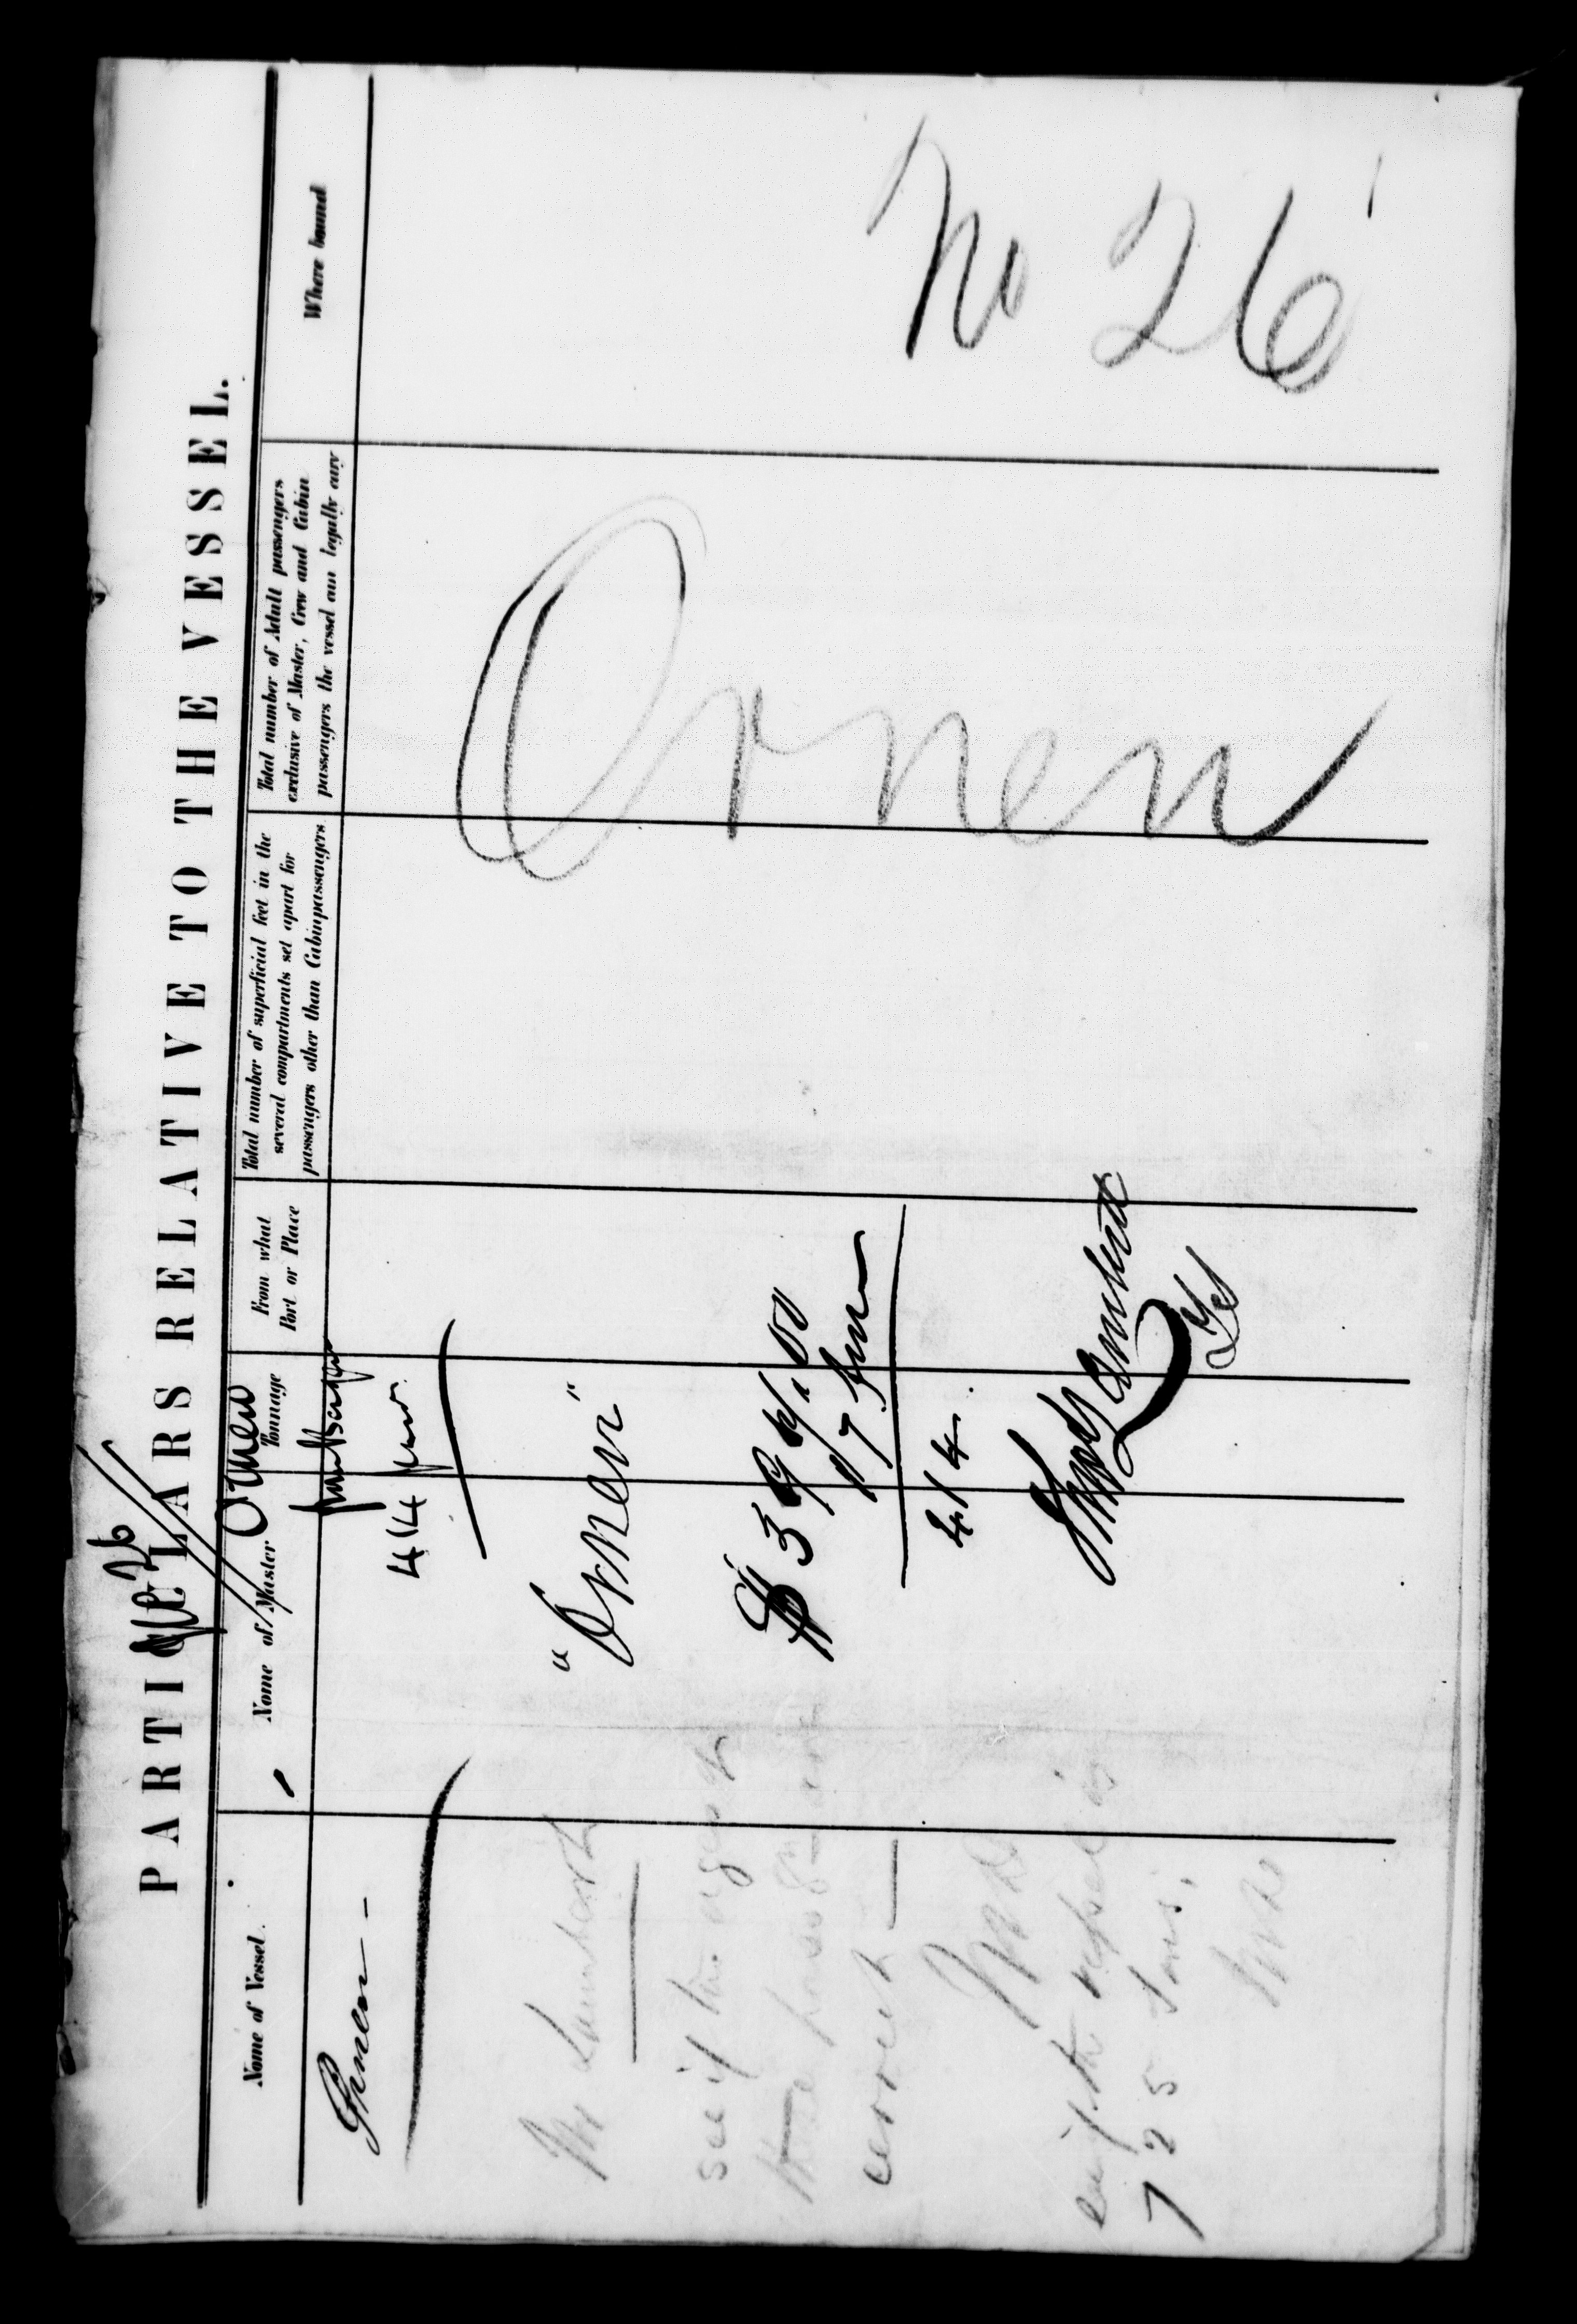 No. 26
PARTICULARS RELATIVE TO THE VESSEL.
Nome of Vessel.
Nome of Master
Tonnage
From what
Port or Place
Total number of superficial feet in the
several compartments set apart for
passengers other than Cabinpassengers
Total number of Adult passengers
exclusive of Master, Crew and Cabin
passengers the vessel can legally cary
Where bound
Ornen
Ornen -
from Hamburg
414
"Ornen"
$ 397.50
17 free
414.
No 26
Ornen
Mr Lambert
see if
these pass
correct
vessel is
725 Tons.